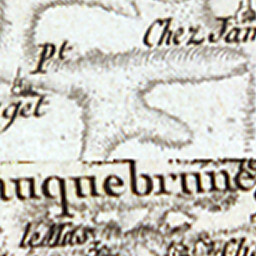 Chez Jam
Pt
get
uquebrune
le Mas